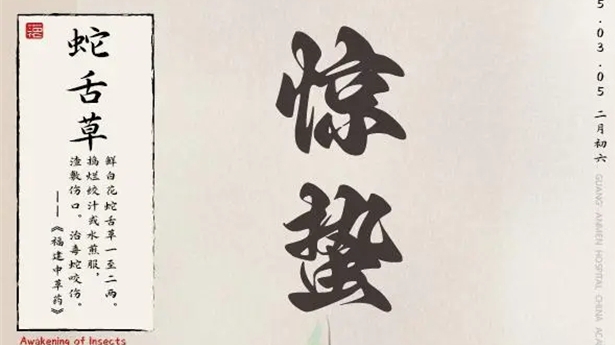 蛇舌草
鲜白花蛇舌草一至二两。
捣烂绞汁或水煎服，
渣敷伤口。治毒蛇咬伤。
——《福建中草药》
Awakening of Insects
惊蛰
5.03.05 二月初六
GUANG'ANMEN HOSPITAL CHINA ACA